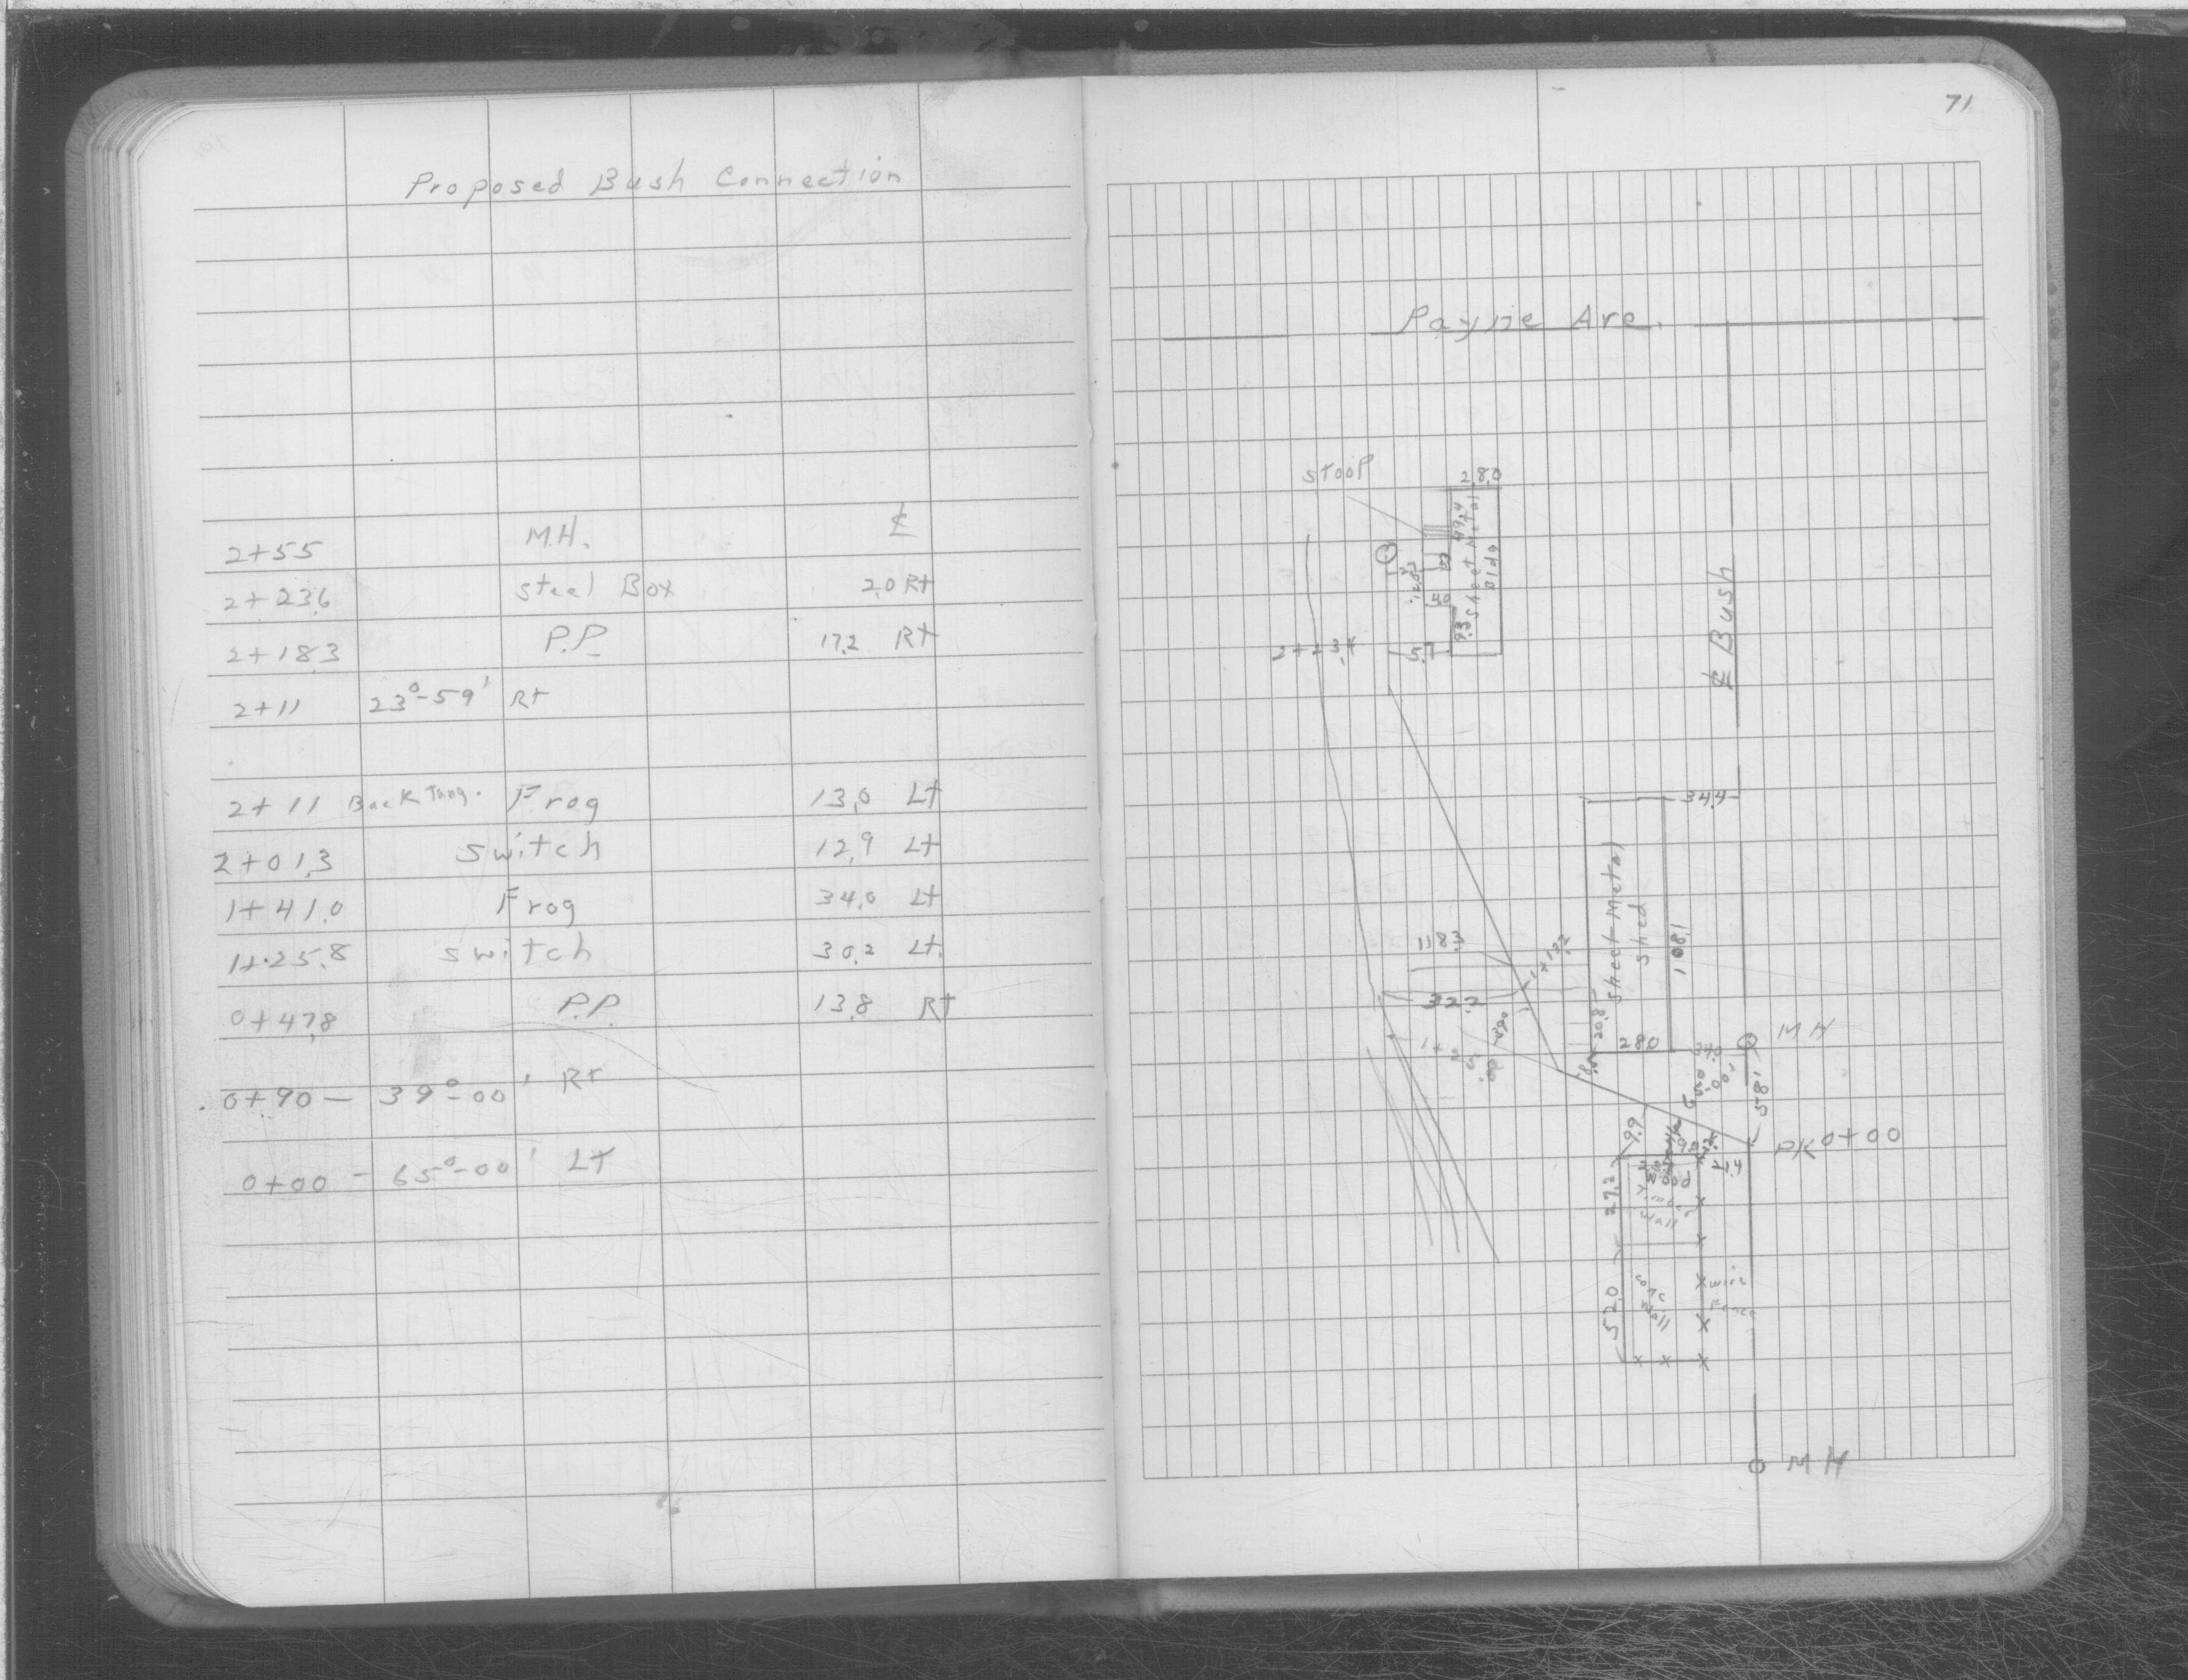 Proposed Bush Connection
2+55 M.H. ℄
2+23.6 steel Box 2.0 Rt
2+18.3 P.P. 17.2 Rt
2+11 23°-59' Rt
2+11 Back Tang. Frog 13.0 Lt
2+01.3 switch 12.9 Lt
1+41.0 Frog 34.0 Lt
1+25.8 switch 30.2 Lt.
0+47.8 P.P. 13.8 Rt
0+90 — 39°-00' Rt
0+00 - 65°-00' Lt
71
Payne Ave.
STOOP
28.0
49.4
Sheet Metal
Bldg
4.0
9.3
2+23.4
5.7
℄ Bush
34.4
Sheet Metal
Shed
108.1
118.3
32.2
20.8
28.0
34.0
MH
65°-00'
58.1
PK 0+00
9.9
21.4
27.2
Wood
Timber
Wall
52.0
Conc
Wall
wire
Fence
MH